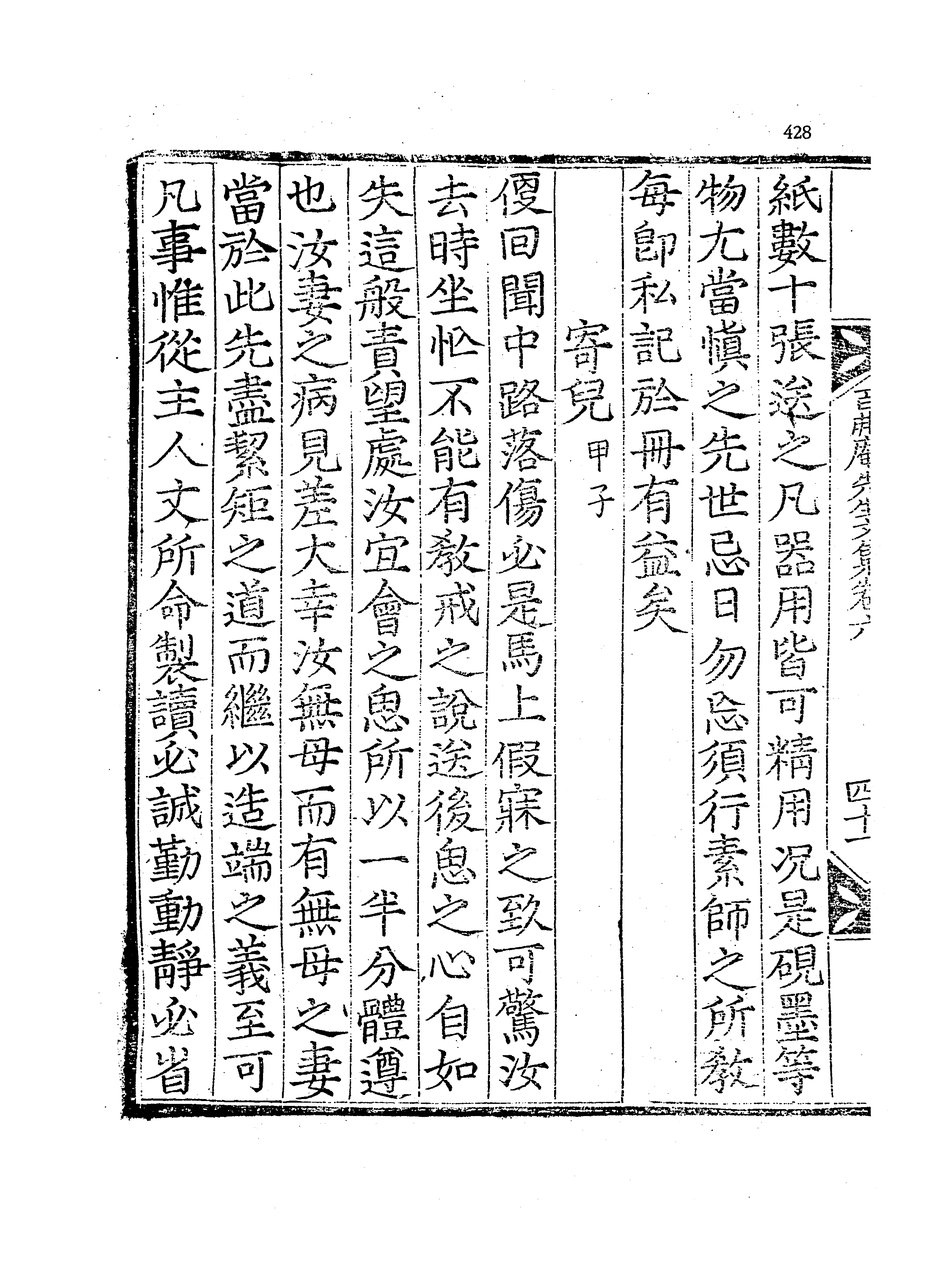 428
先生文集卷六
四十一
紙數十張送之凡器用皆可精用况是硯墨等
物尤當愼之先世忌日勿忘須行素師之所敎
每卽私記於冊有益矣
寄兒 甲子
便回聞中路落傷必是馬上假寐之致可驚汝
去時坐忙不能有敎戒之說送後思之心自如
失這般責望處汝宜會之思所以一半分體遵
也汝妻之病見差大幸汝無母而有無母之妻
當於此先盡絜矩之道而繼以造端之義至可
凡事惟從主人丈所命製讀必誠勤動靜必省